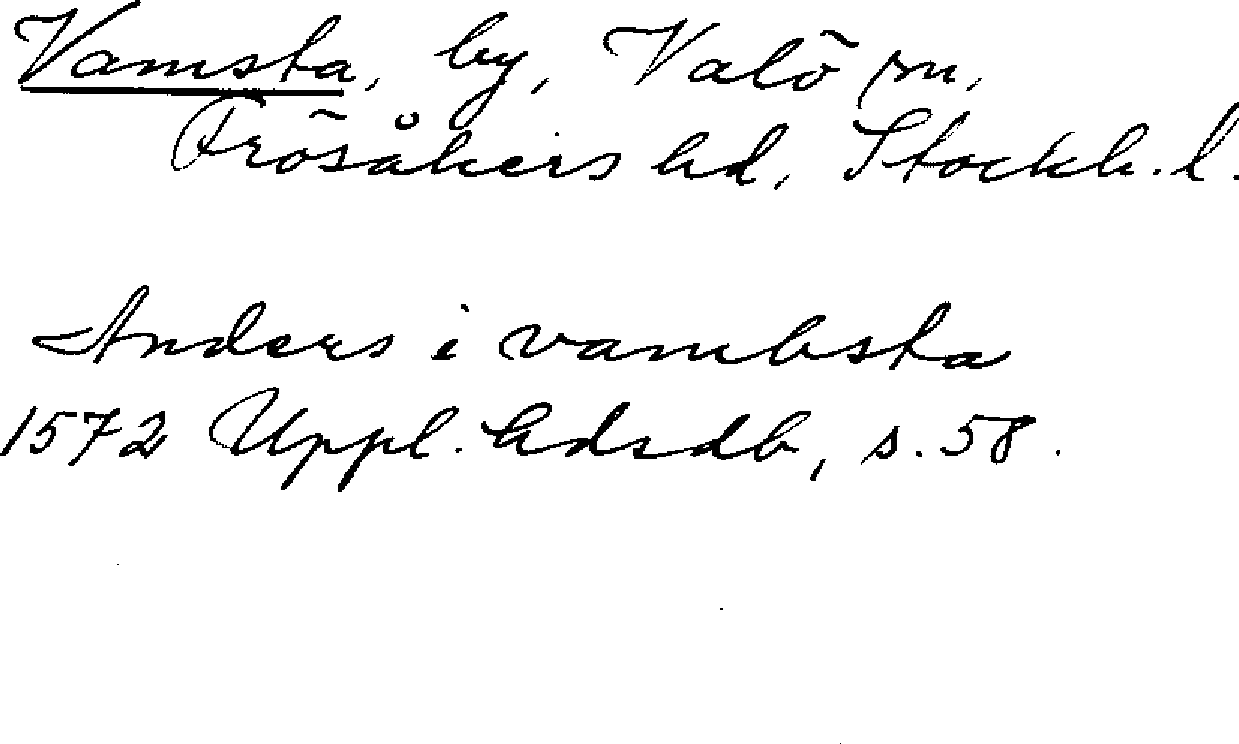 Vamsta, by, Valö sn,
Frösåkers hd, Stockh. l.
Anders i vambsta
1572 Uppl. hdsdb, s. 58.